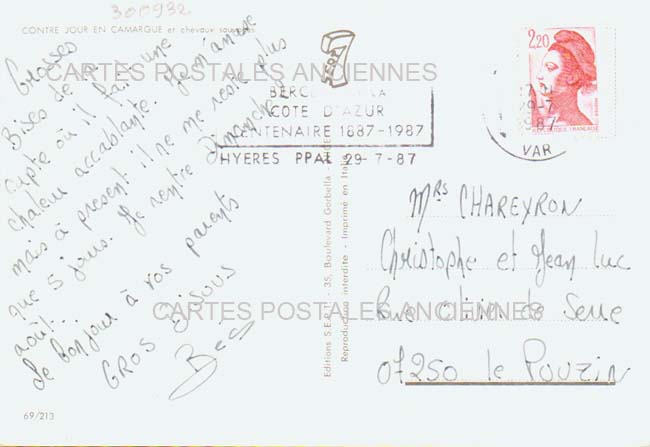 300932
CONTRE JOUR EN CAMARGUE et chevaux sauvages
Grosses
Bises de
capte où il fait une
chaleur accablante. Je m'amuse
mais à present il ne me reste plus
que 5 jours. Je rentre Dimanche
août...
Le bonjour à vos parents
GROS BISOUS
69/213
CARTES POSTALES ANCIENNES
CARTES POSTALES ANCIENNES
Editions S.E.S.T. - 35, Boulevard Gorbella -
Reproduction interdite - Imprimé en Italie
LA
COTE D'AZUR
CENTENAIRE 1887-1987
HYERES PPAL 29-7-87
29-7
VAR
2,20
REPUBLIQUE FRANÇAISE
MRS CHAREYRON
Christophe et Jean Luc
Rue olivier de Serre
07250 le Pouzin